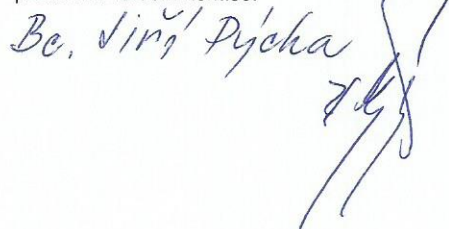 Bc. Jiří Pýcha